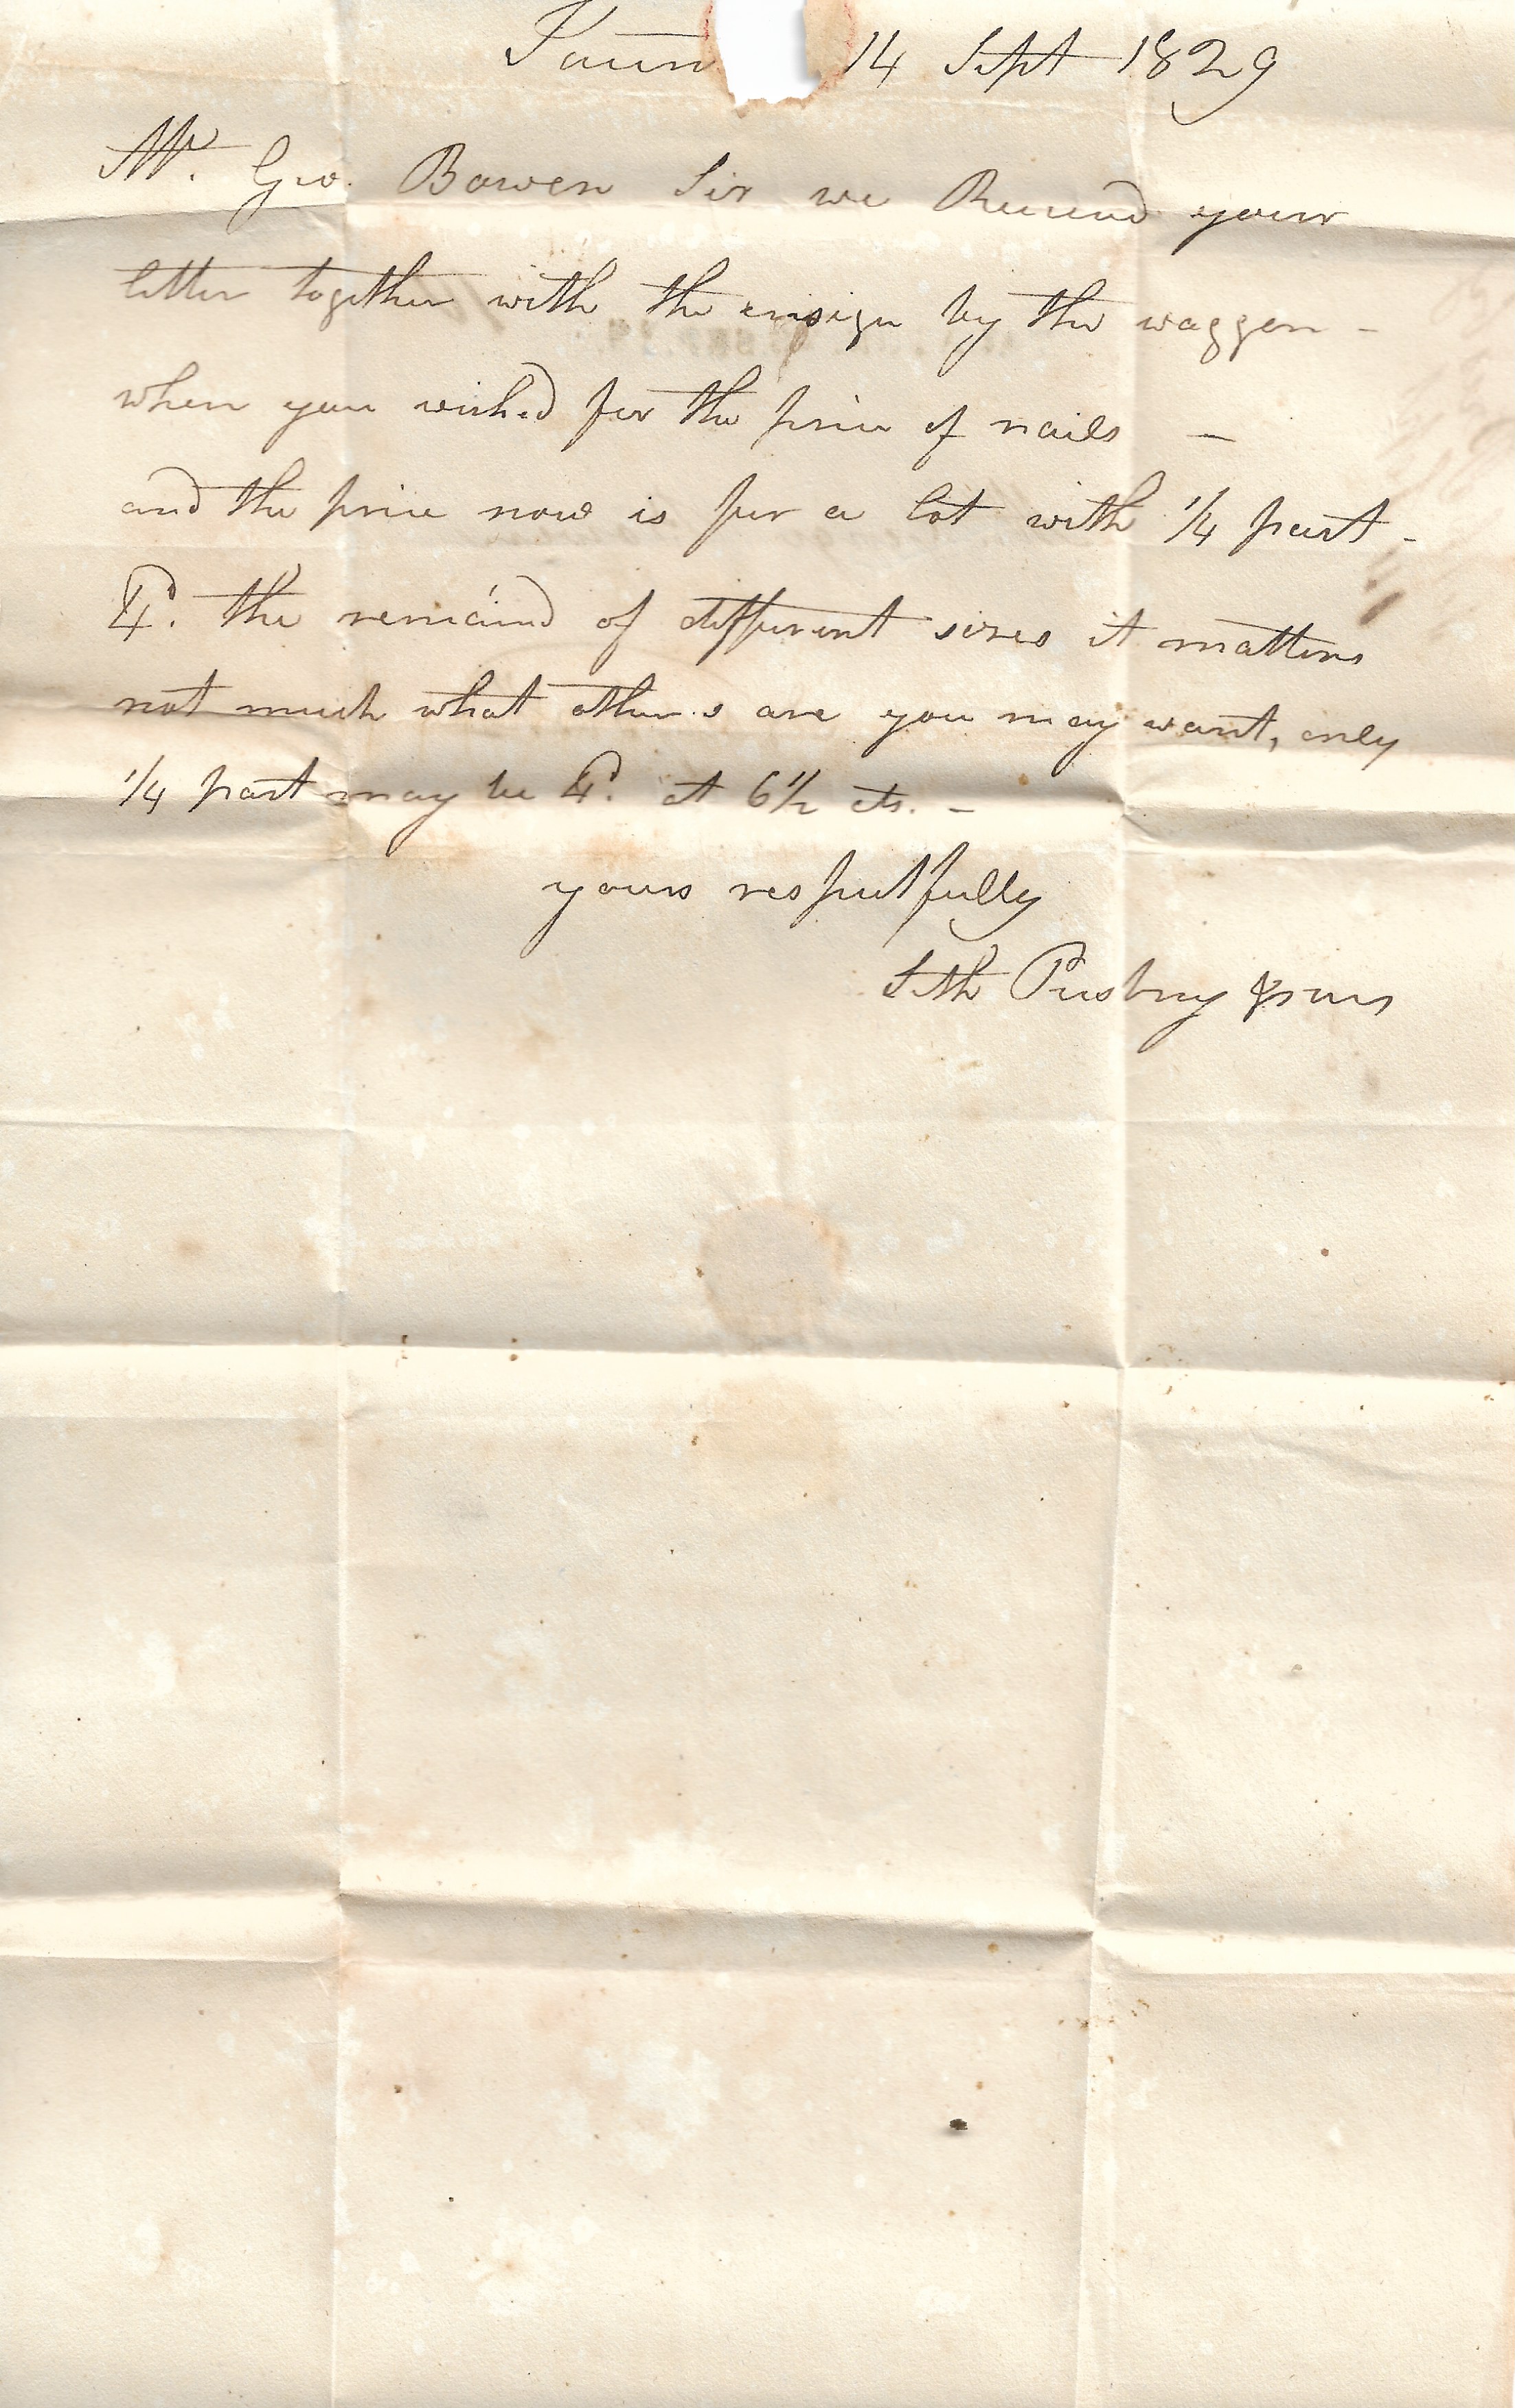 Taun 14 Sept 1829
Mr. Geo. Bowen Sir we Received your
letter together with the ensign by the waggon -
when you wished for the price of nails -
and the price now is for a lot with 1/4 part -
4d. the remaind of different sizes it matters
not much what others are you may want, only
1/4 part may be 4d. at 6 1/2 cts. -
yours respectfully
Seth &sons